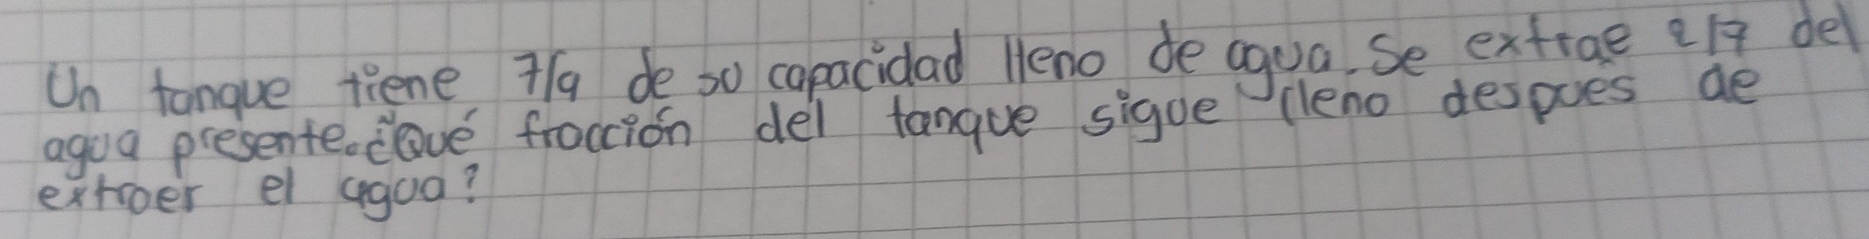 Un tanque tiene 7/9 de su capacidad lleno de agua. Se extrae 2/7 del
agua presente. ¿Qué fracción del tanque sigue lleno despues de
extraer el agua?